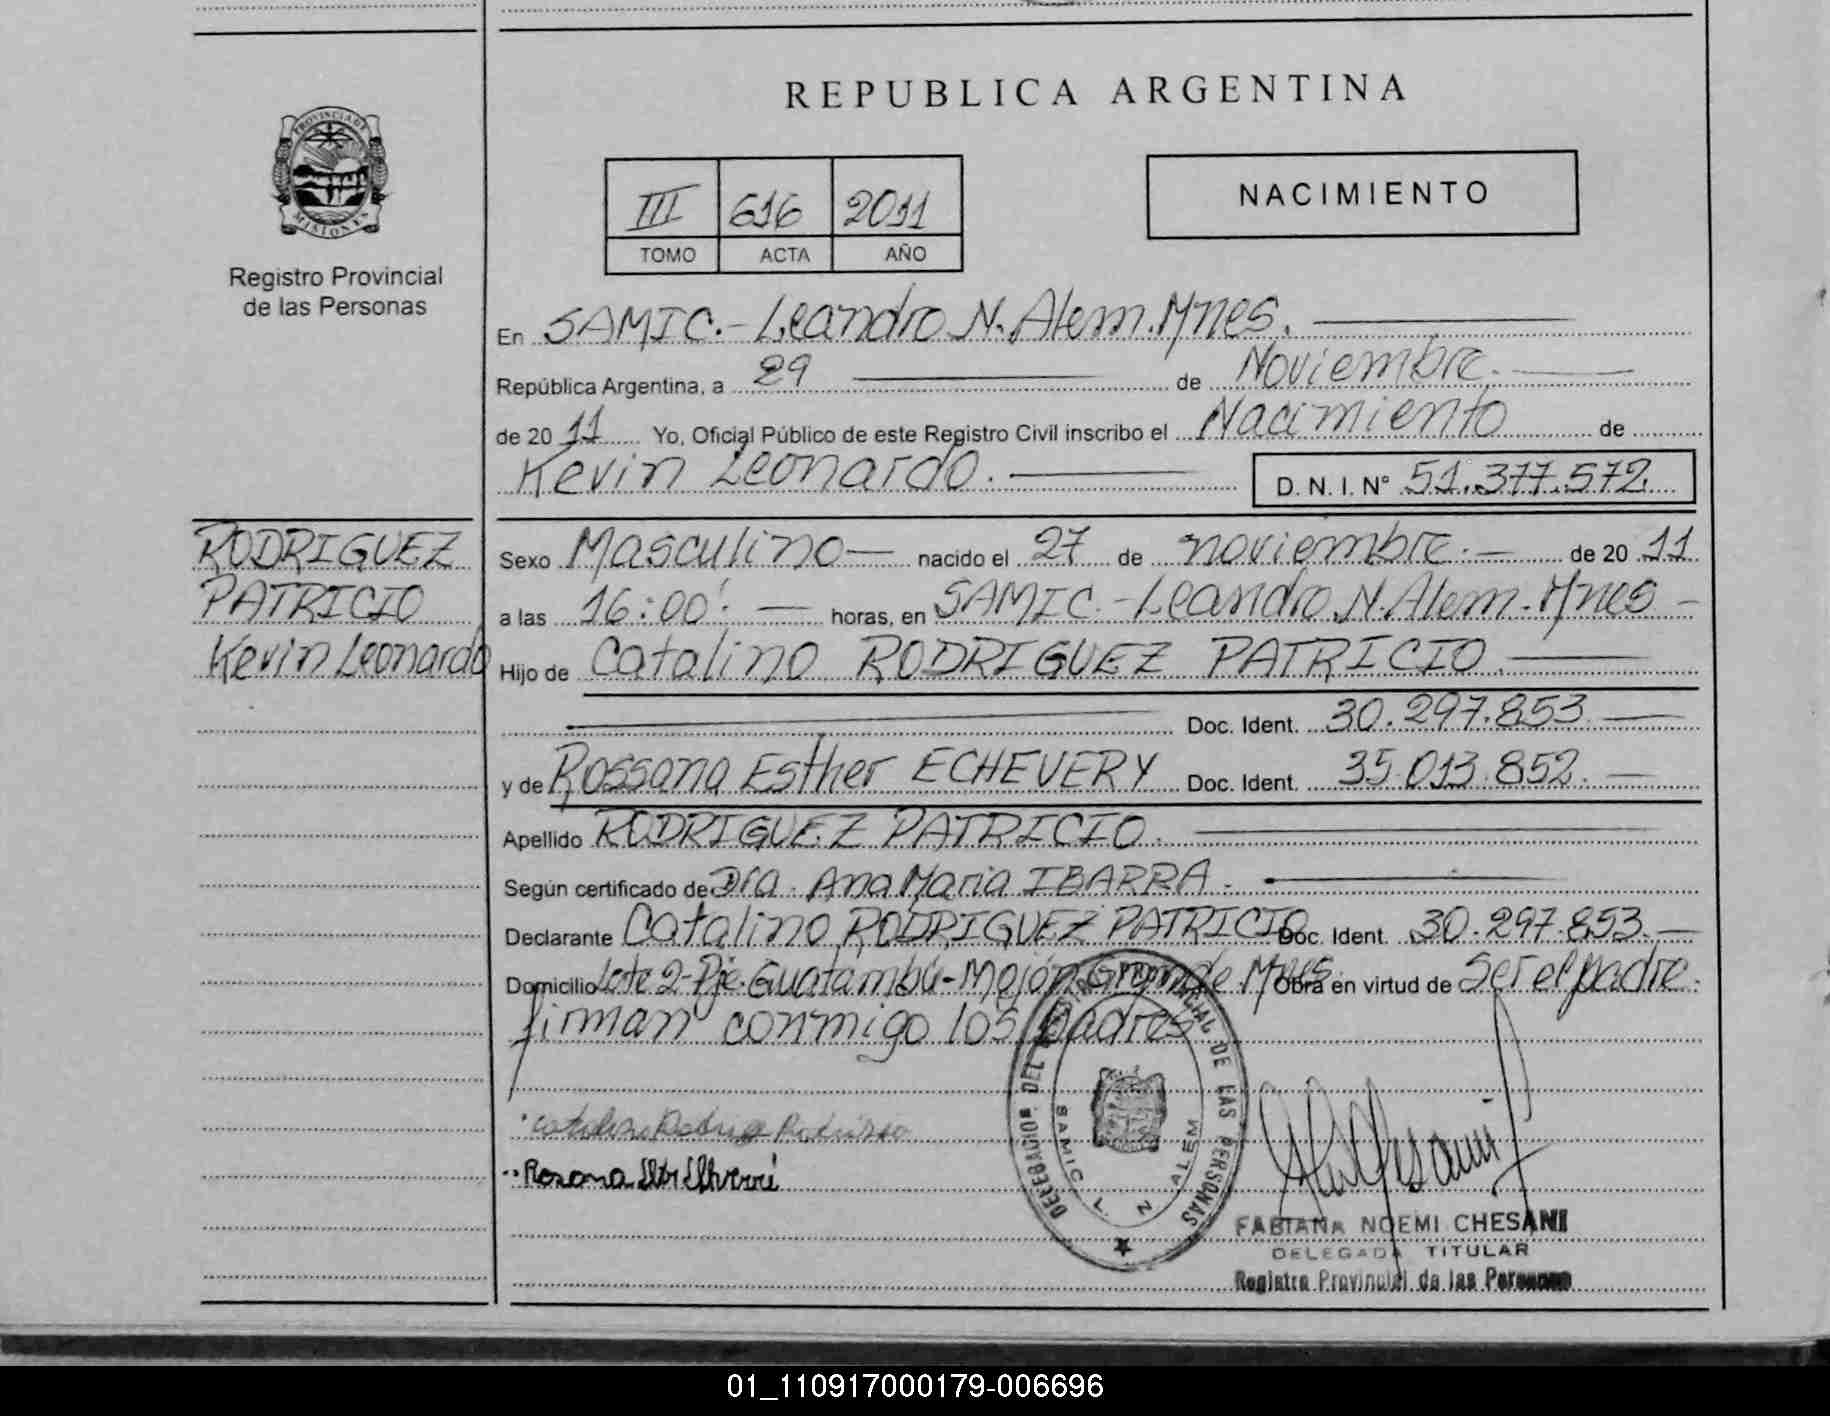 REPUBLICA ARGENTINA
PROVINCIA DE
MISIONES
Registro Provincial
de las Personas
III 616 2011
TOMO ACTA AÑO
NACIMIENTO
En SAMIC.- Leandro N. Alem. Mnes.
República Argentina, a 29 de Noviembre.
de 20 11 Yo, Oficial Público de este Registro Civil inscribo el Nacimiento de
Kevin Leonardo. D. N. I. N° 51.377.572.
RODRIGUEZ
PATRICIO
Kevin Leonardo
Sexo Masculino nacido el 27 de noviembre. de 20 11
a las 16:00'. horas, en SAMIC.-Leandro N. Alem. Mnes
Hijo de Catalino RODRIGUEZ PATRICIO.
Doc. Ident. 30.297.853
y de Rossana Esther ECHEVERY Doc. Ident. 35.013.852.
Apellido RODRIGUEZ PATRICIO.
Según certificado de Dra. Ana Maria IBARRA.
Declarante Catalino RODRIGUEZ PATRICIO Doc. Ident. 30.297.853.
Domicilio Lote 2-Pje. Guatambú-Mojón Grande. Mnes. Obra en virtud de ser el padre.
firman conmigo los padres
DEL REGISTRO PROVINCIAL DE LAS PERSONAS
SAMIC L. N. ALEM
FABIANA NOEMI CHESANI
DELEGADA TITULAR
Registro Provincial de las Personas
01_110917000179-006696